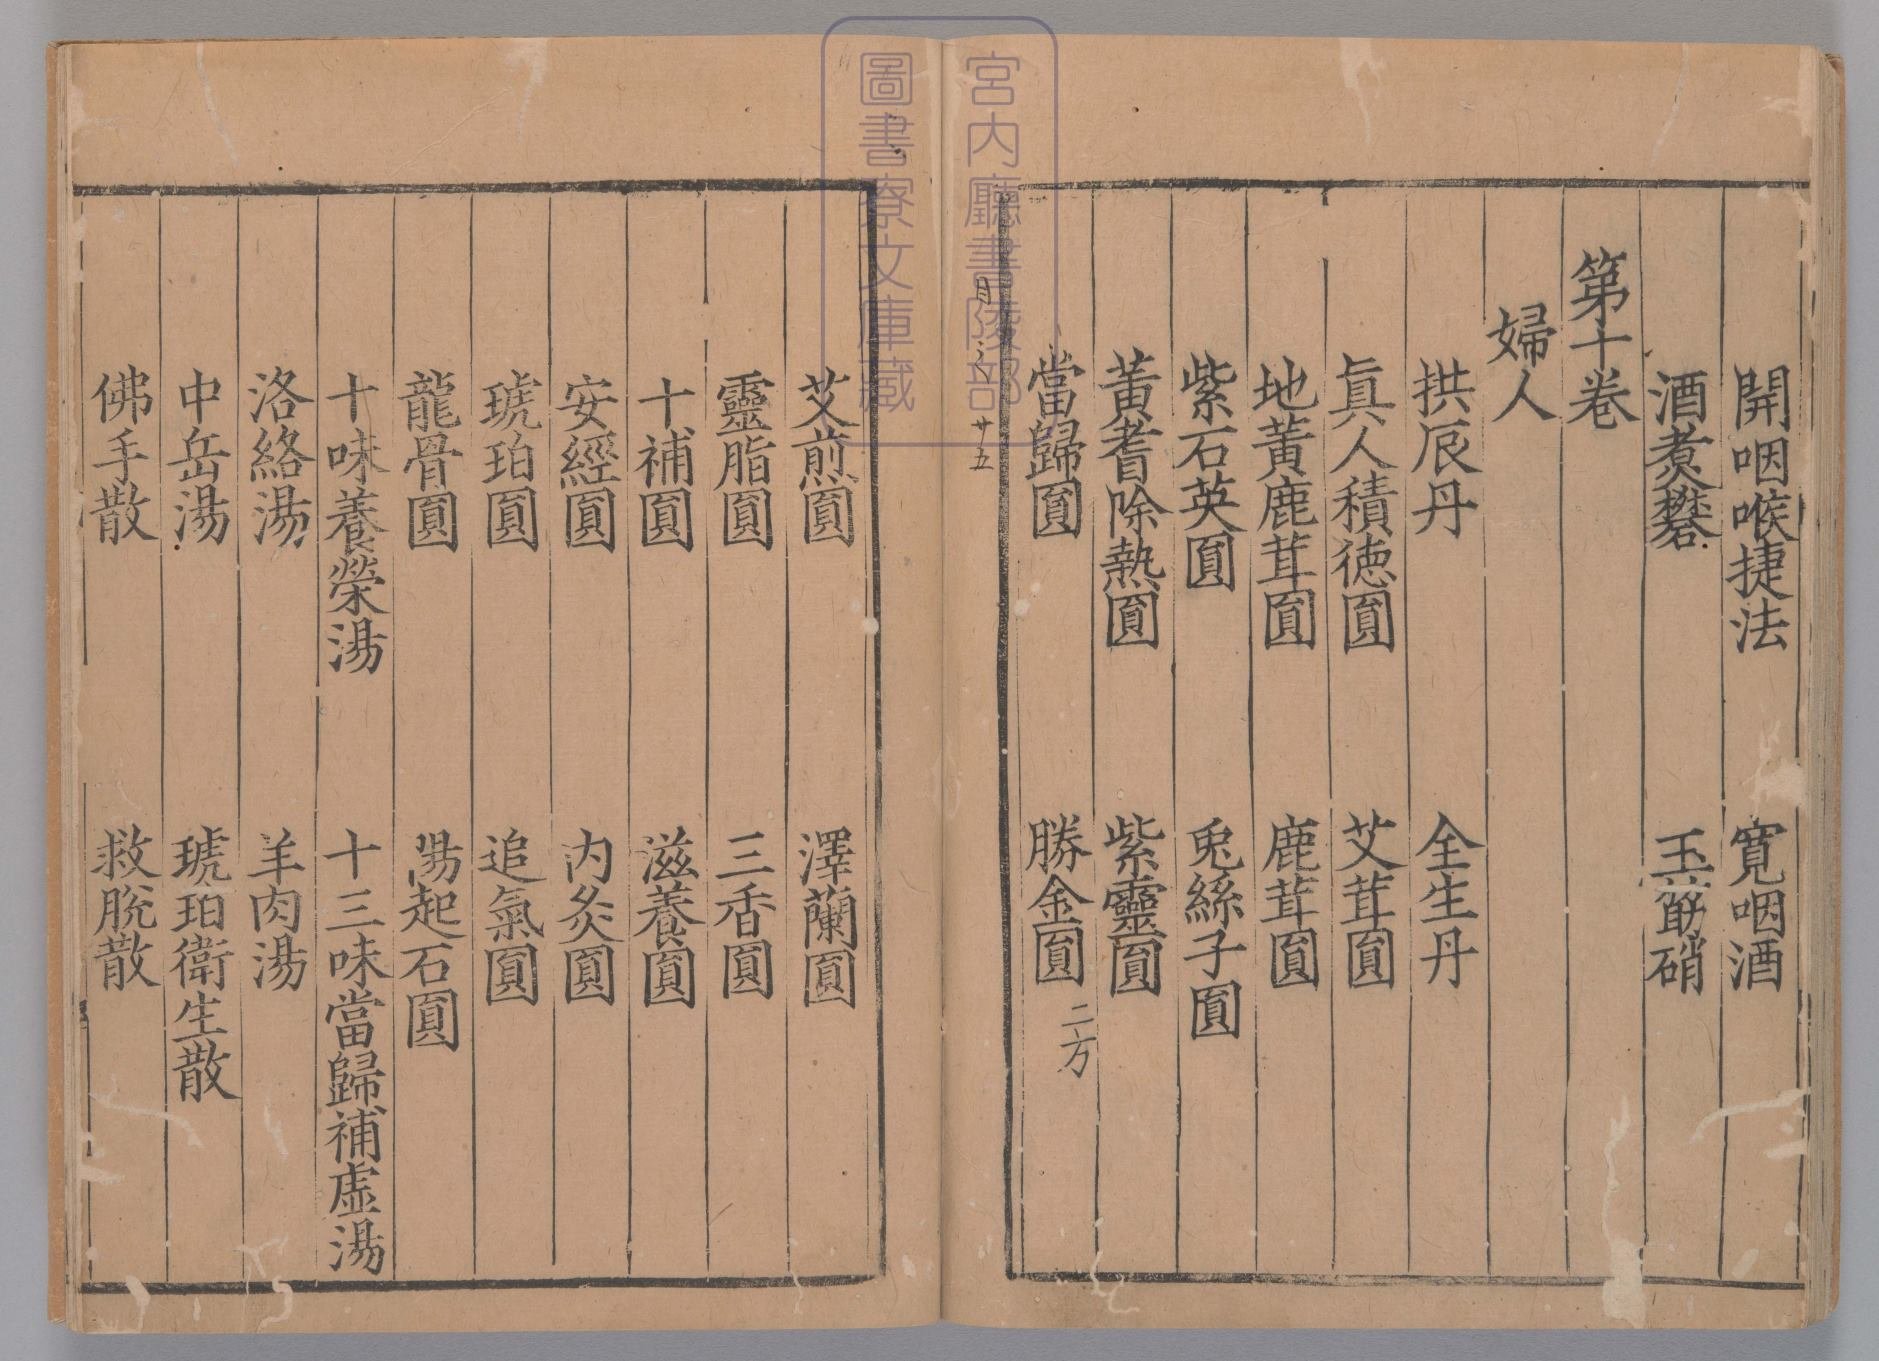 開咽喉捷法　寛咽酒
酒煮礬　玉箭硝
第十卷
婦人
拱辰丹　全生丹
眞人積德圓　艾茸圓
地黄鹿茸圓　鹿茸圓
紫石英圓　兎絲子圓
黄耆除熱圓　紫靈圓
當歸圓　勝金圓二方
目
廿五
艾煎圓　澤蘭圓
靈脂圓　三香圓
十補圓　滋養圓
安經圓　内灸圓
琥珀圓　追氣圓
龍骨圓　陽起石圓
十味養榮湯　十三味當歸補虚湯
洛絡湯　羊肉湯
中岳湯　琥珀衛生散
佛手散　救脱散
宮内廳書陵部
圖書寮文庫藏